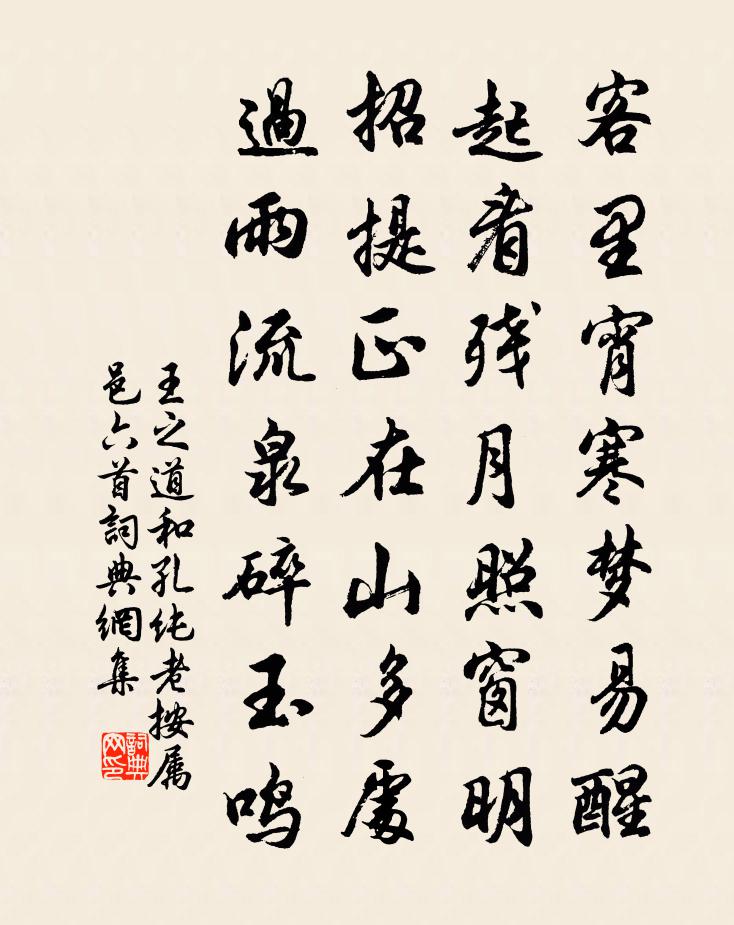 客里宵寒梦易醒
起看残月照窗明
招提正在山多處
過雨流泉碎玉鳴
王之道和孔纯老按属
邑六首詞典網集
詞典网印